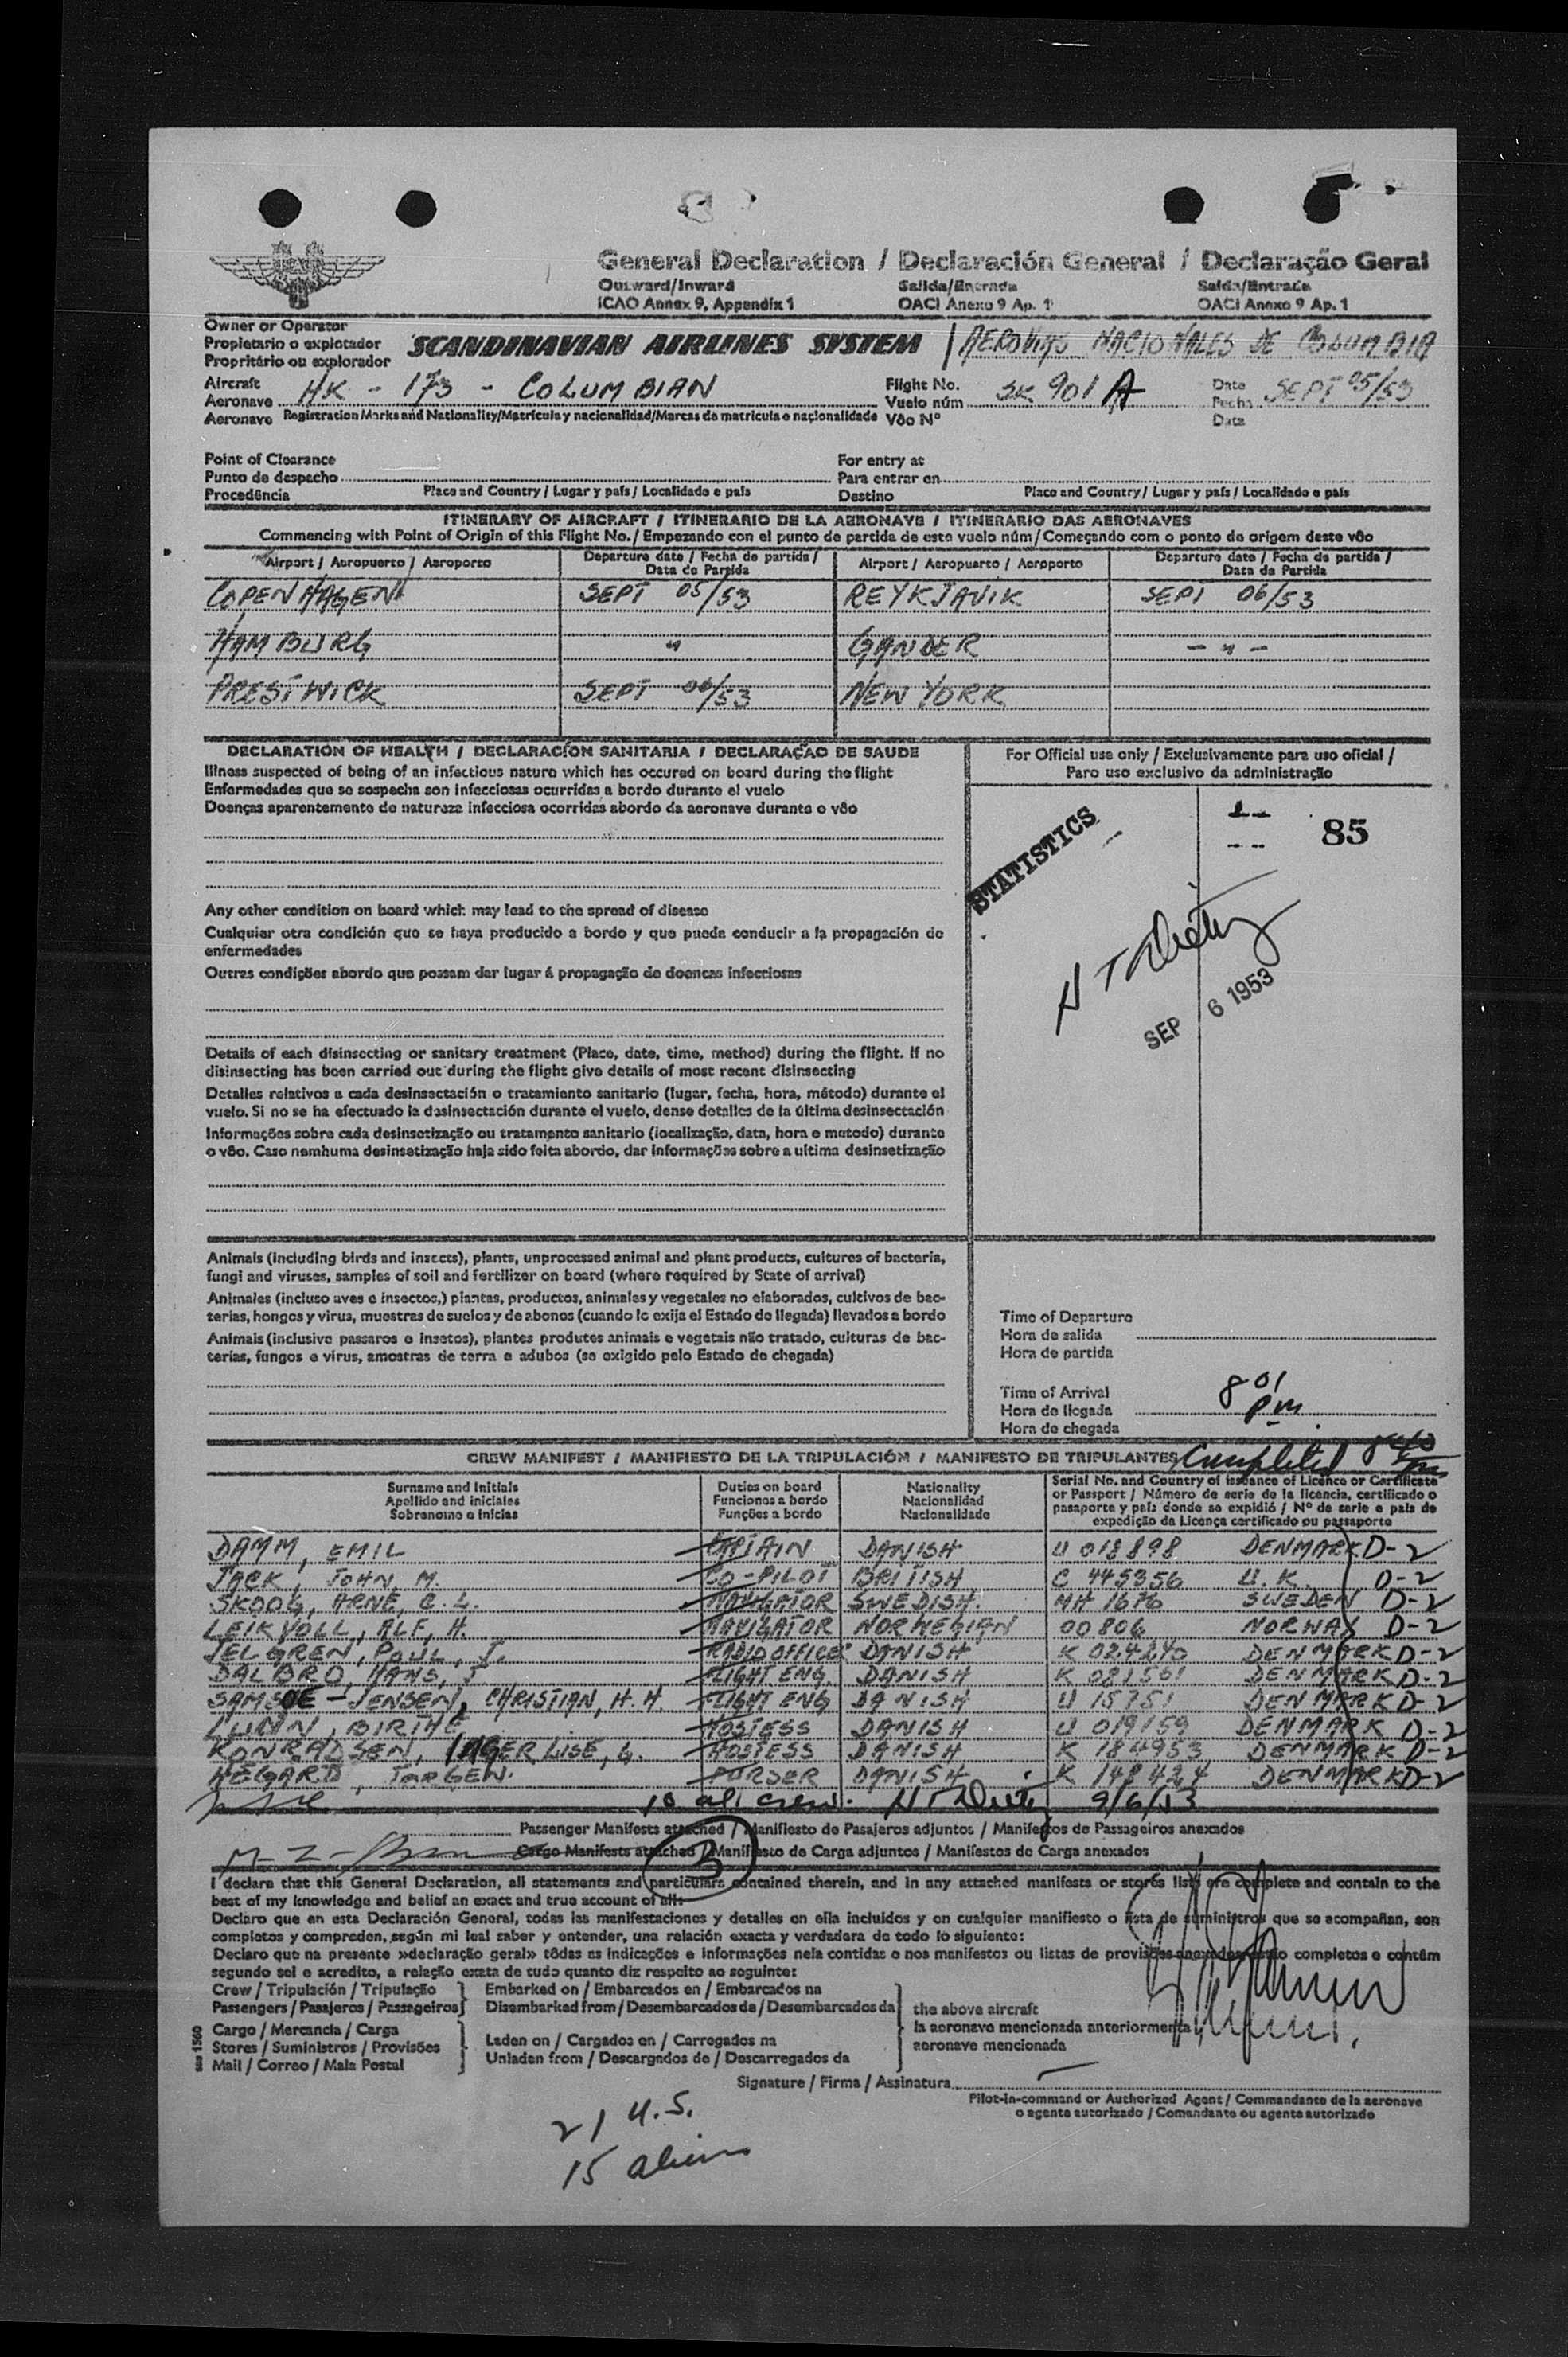 General Declaration / Declaración General / Declaração Geral
Outward/Inward Salida/Entrada Saida/Entrada
ICAO Annex 9, Appendix 1 OACI Anexo 9 Ap. 1 OACI Anexo 9 Ap. 1
Owner or Operator
Propietario o explotador SCANDINAVIAN AIRLINES SYSTEM / AEROVIAS NACIONALES DE COLUMBIA
Propritário ou explorador
Aircraft HK - 173 - COLUMBIAN Flight No. SK 901 A Date SEPT 05/53
Aeronave Vuelo núm Fecha
Aeronave Registration Marks and Nationality/Matrícula y nacionalidad/Marcas de matricula e naçionalidade Vôo Nº Data
Point of Clearance For entry at
Punto de despacho Para entrar en
Procedência Place and Country / Lugar y país / Localidade e país Destino Place and Country / Lugar y país / Localidade e país
ITINERARY OF AIRCRAFT / ITINERARIO DE LA AERONAVE / ITINERARIO DAS AERONAVES
Commencing with Point of Origin of this Flight No. / Empezando con el punto de partida de este vuelo núm / Começando com o ponto de origem deste vôo
Airport / Aeropuerto / Aeroporto Departure date / Fecha de partida / Data de Partida Airport / Aeropuerto / Aeroporto Departure date / Fecha de partida / Data de Partida
COPENHAGEN SEPT 05/53 REYKJAVIK SEPT 06/53
HAMBURG " GANDER - " -
PRESTWICK SEPT 06/53 NEW YORK
DECLARATION OF HEALTH / DECLARACIÓN SANITARIA / DECLARAÇAO DE SAUDE
Illness suspected of being of an infectious nature which has occured on board during the flight
Enfermedades que se sospecha son infecciosas ocurridas a bordo durante el vuelo
Doenças aparentemente de natureza infecciosa ocorridas abordo da aeronave durante o vôo
Any other condition on board which may lead to the spread of disease
Cualquier otra condición que se haya producido a bordo y que pueda conducir a la propagación de
enfermedades
Outras condições abordo que possam dar lugar á propagação de doencas infecciosas
Details of each disinsecting or sanitary treatment (Place, date, time, method) during the flight. If no
disinsecting has been carried out during the flight give details of most recent disinsecting
Detalles relativos a cada desinsectación o tratamiento sanitario (lugar, fecha, hora, método) durante el
vuelo. Si no se ha efectuado la desinsectación durante el vuelo, dense detalles de la última desinsectación
Informações sobre cada desinsetização ou tratamento sanitario (localização, data, hora e metodo) durante
o vôo. Caso nemhuma desinsetização haja sido feita abordo, dar informações sobre a ultima desinsetização
For Official use only / Exclusivamente para uso oficial /
Paro uso exclusivo da administração
85
STATISTICS
SEP 6 1953
Animals (including birds and insects), plants, unprocessed animal and plant products, cultures of bacteria,
fungi and viruses, samples of soil and fertilizer on board (where required by State of arrival)
Animales (incluso aves e insectos,) plantas, productos, animales y vegetales no elaborados, cultivos de bac-
terias, hongos y virus, muestras de suelos y de abonos (cuando lo exija el Estado de llegada) llevados a bordo
Animais (inclusive passaros e insetos), plantes produtes animais e vegetais não tratado, culturas de bac-
terias, fungos e virus, amostras de terra e adubos (se exigido pelo Estado de chegada)
Time of Departure
Hora de salida
Hora de partida
Time of Arrival 8 01
Hora de llegada pm
Hora de chegada
CREW MANIFEST / MANIFIESTO DE LA TRIPULACIÓN / MANIFESTO DE TRIPULANTES Completed
Surname and Initials Duties on board Nationality Serial No. and Country of issuance of Licence or Certificate
Apellido and iniciales Funciones a bordo Nacionalidad or Passport / Número de serie de la licencia, certificado o
Sobrenome e inicias Funções a bordo Nacionalidade pasaporte y país donde se expidió / Nº de serie e pais de
expedição da Licença certificado ou passaporte
DAMM, EMIL CAPTAIN DANISH U 018898 DENMARK D-2
JACK, JOHN, M. CO-PILOT BRITISH C 445356 U.K. D-2
SKOOG, ARNE, C.L. NAVIGATOR SWEDISH. MH 1670 SWEDEN D-2
LEIKVOLL, ALF, H. NAVIGATOR NORWEGIAN 00806 NORWAY D-2
JELGREN, POUL, J. RADIO OFFICER DANISH K 024240 DENMARK D-2
DALBRO, HANS, J FLIGHT ENG. DANISH K 081561 DENMARK D-2
SAMSOE-JENSEN, CHRISTIAN, H.H. FLIGHT ENG DANISH U 15751 DENMARK D-2
LUNN, BIRTHE HOSTESS DANISH U 019159 DENMARK D-2
KONRADSEN, INGER LISE, G. HOSTESS DANISH K 184953 DENMARK D-2
HEGARD, JORGEN. PURSER DANISH K 148424 DENMARK D-2
10 al. crew. 9/6/53
Passenger Manifests attached / Manifiesto de Pasajeros adjuntos / Manifestos de Passageiros anexados
Cargo Manifests attached / Manifiesto de Carga adjuntos / Manifestos de Carga anexados
3
I declare that this General Declaration, all statements and particulars contained therein, and in any attached manifests or stores lists are complete and contain to the
best of my knowledge and belief an exact and true account of all:
Declaro que en esta Declaración General, todas las manifestaciones y detalles en ella incluidos y en cualquier manifiesto o lista de suministros que se acompañan, son
completos y compreden, según mi leal saber y entender, una relación exacta y verdadera de todo lo siguiente:
Declaro que na presente »declaração geral» tôdas as indicações e informações nela contidas e nos manifestos ou listas de provisões anexados estão completos e contêm
segundo sei e acredito, a relação exata de tudo quanto diz respeito ao seguinte:
Crew / Tripulación / Tripulação Embarked on / Embarcados en / Embarcados na
Passengers / Pasajeros / Passageiros Disembarked from / Desembarcados de / Desembarcados da the above aircraft
Cargo / Mercancia / Carga la aeronave mencionada anteriormente
Stores / Suministros / Provisões Laden on / Cargados en / Carregados na aeronave mencionada
Mail / Correo / Mala Postal Unladen from / Descargados de / Descarregados da
sas 1560
Signature / Firma / Assinatura
Pilot-in-command or Authorized Agent / Commandante de la aeronave
o agente autorizado / Comandante ou agente autorizado
21 U.S.
15 alien